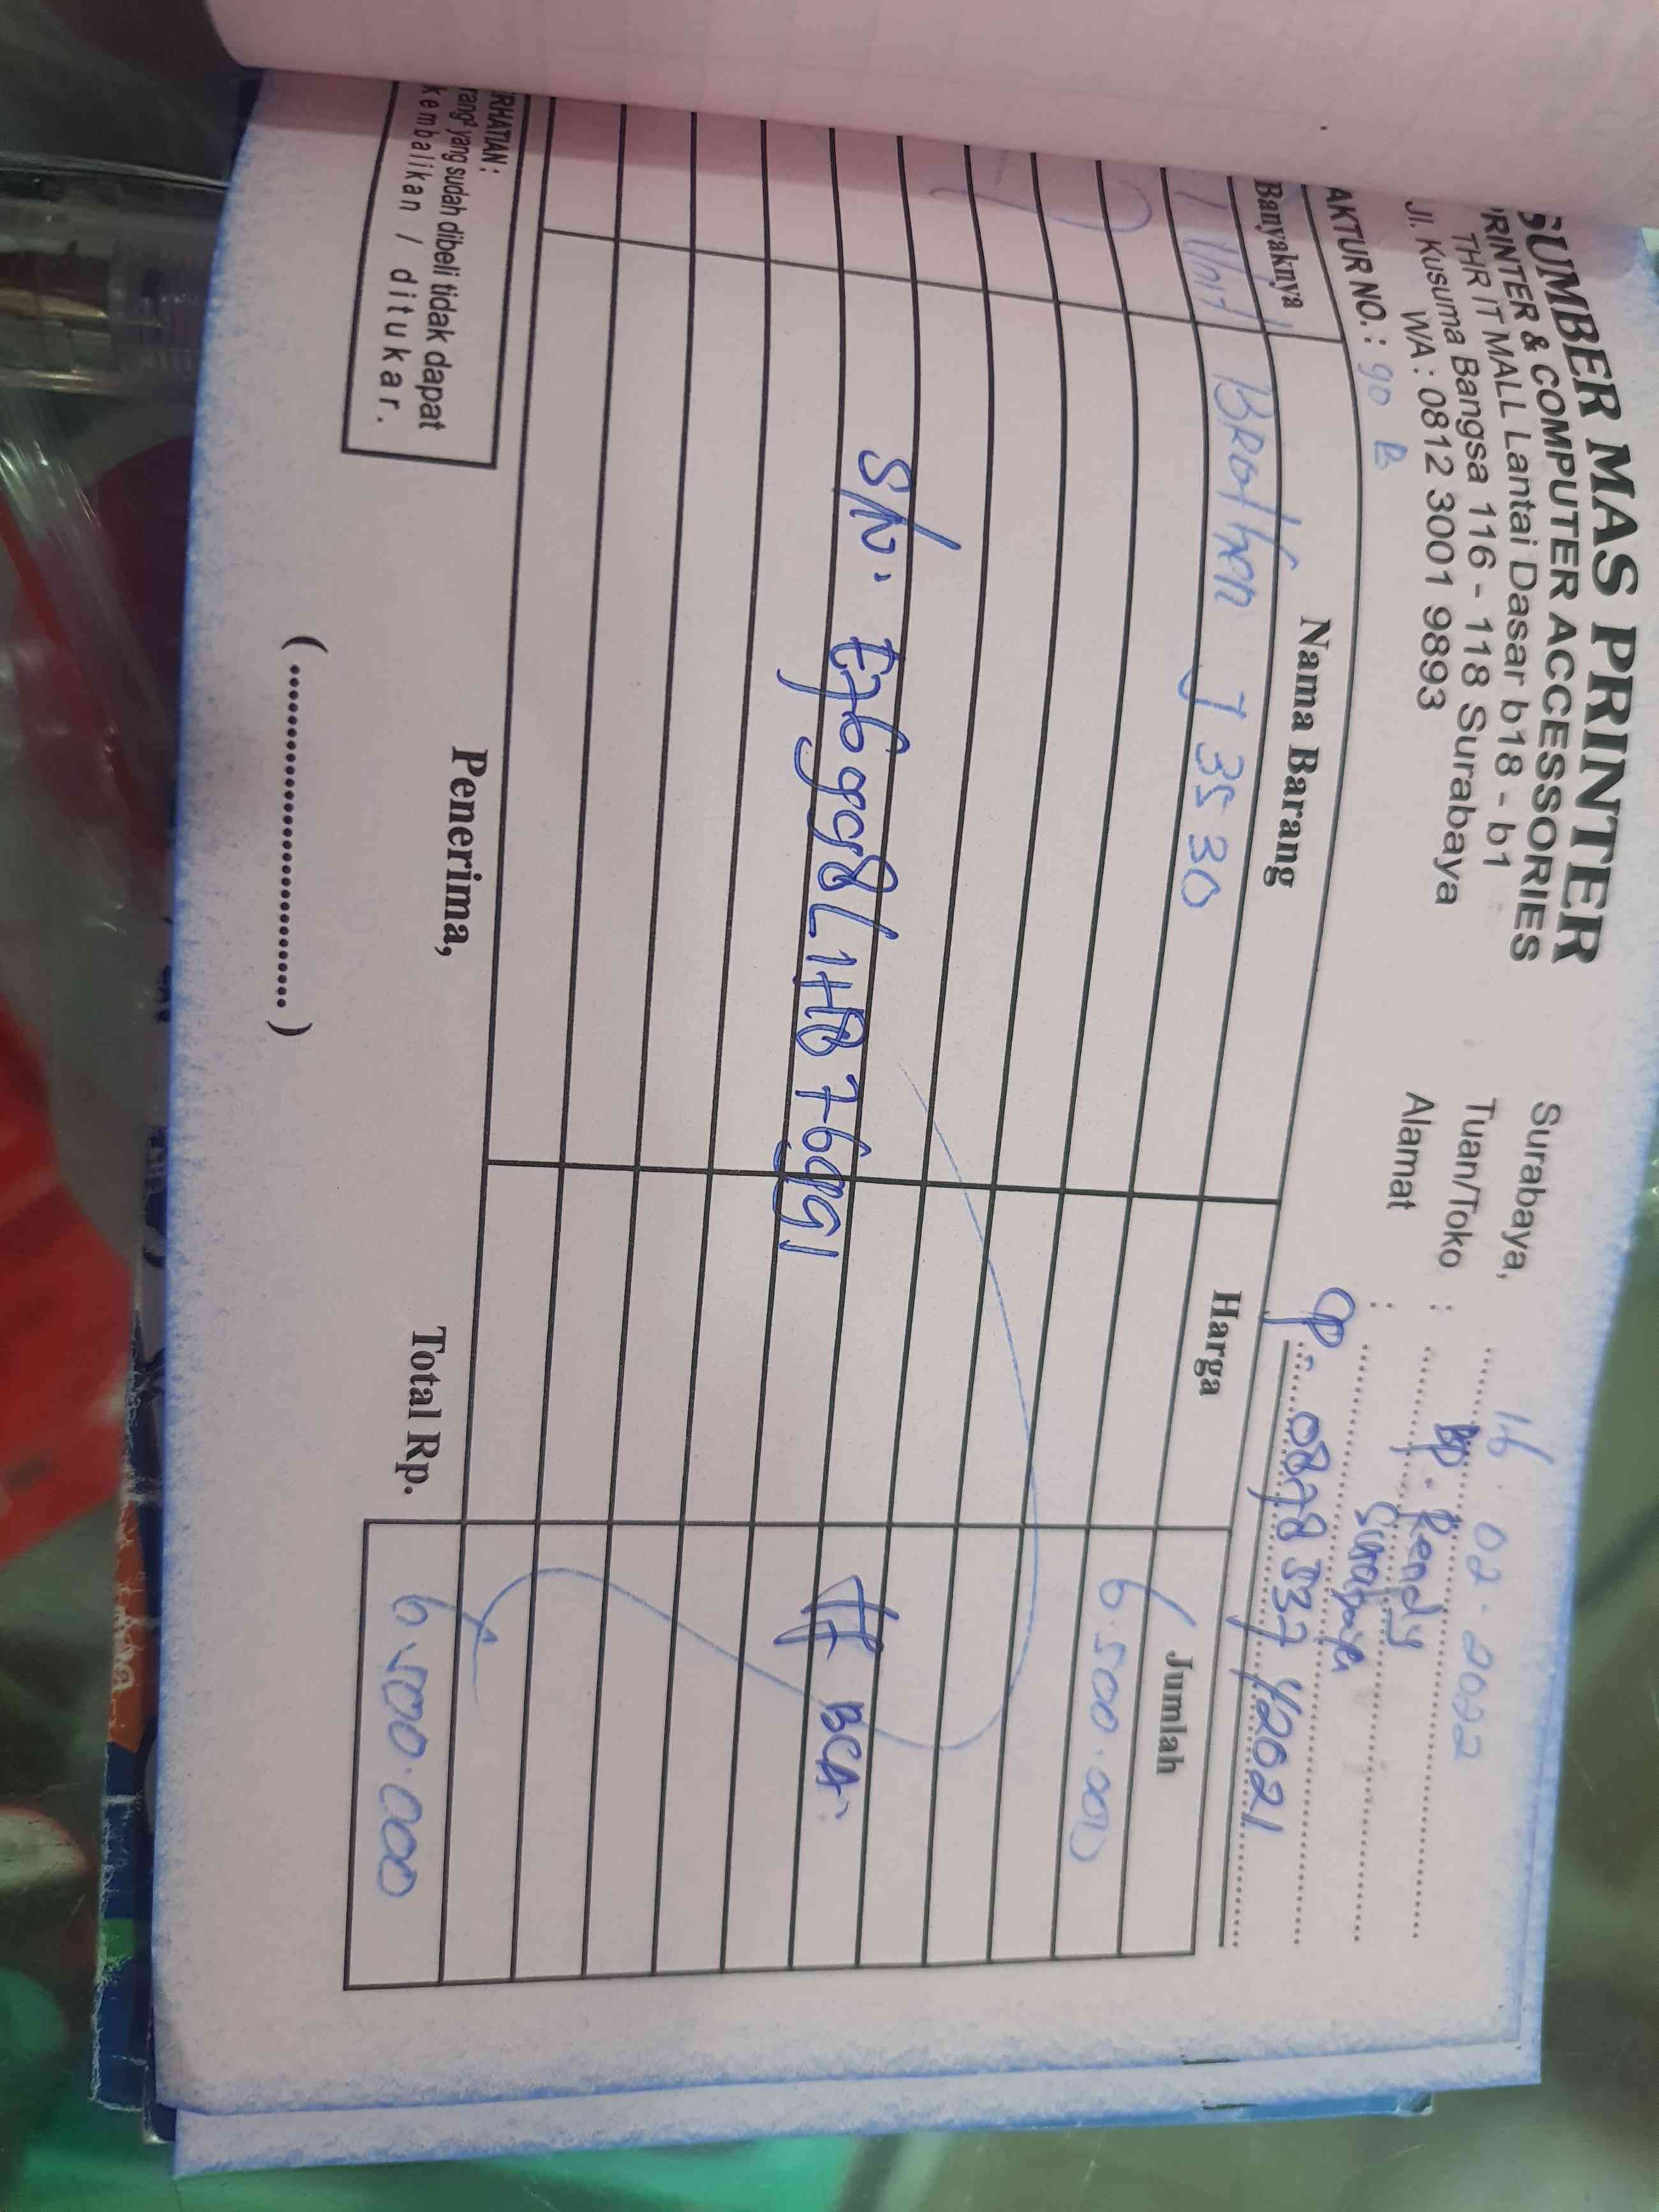 SUMBER MAS PRINTER
PRINTER & COMPUTER ACCESSORIES
THR IT MALL Lantai Dasar b18 - b1
Jl. Kusuma Bangsa 116 - 118 Surabaya
WA : 0812 3001 9893
Surabaya, 16 . 02 . 2022
Tuan/Toko : Bp. Rendy
Alamat : Surabaya
Cp : 0878 537 42021
AKTUR NO. : 90 B
Banyaknya Nama Barang Harga Jumlah
1 Unit Brother J 3530 6.500.000
S/N : E76998L1H876991
tf BCA
RHATIAN :
rang² yang sudah dibeli tidak dapat
kembalikan / ditukar.
Penerima,
(........................)
Total Rp. 6.500.000